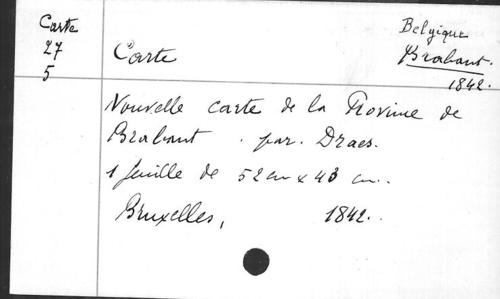 Carte
27
5
Carte
Belgique
Brabant.
1842.
Nouvelle carte de la Province de
Brabant . par. Draes.
1 feuille de 52 cm x 43 cm..
Bruxelles, 1842..